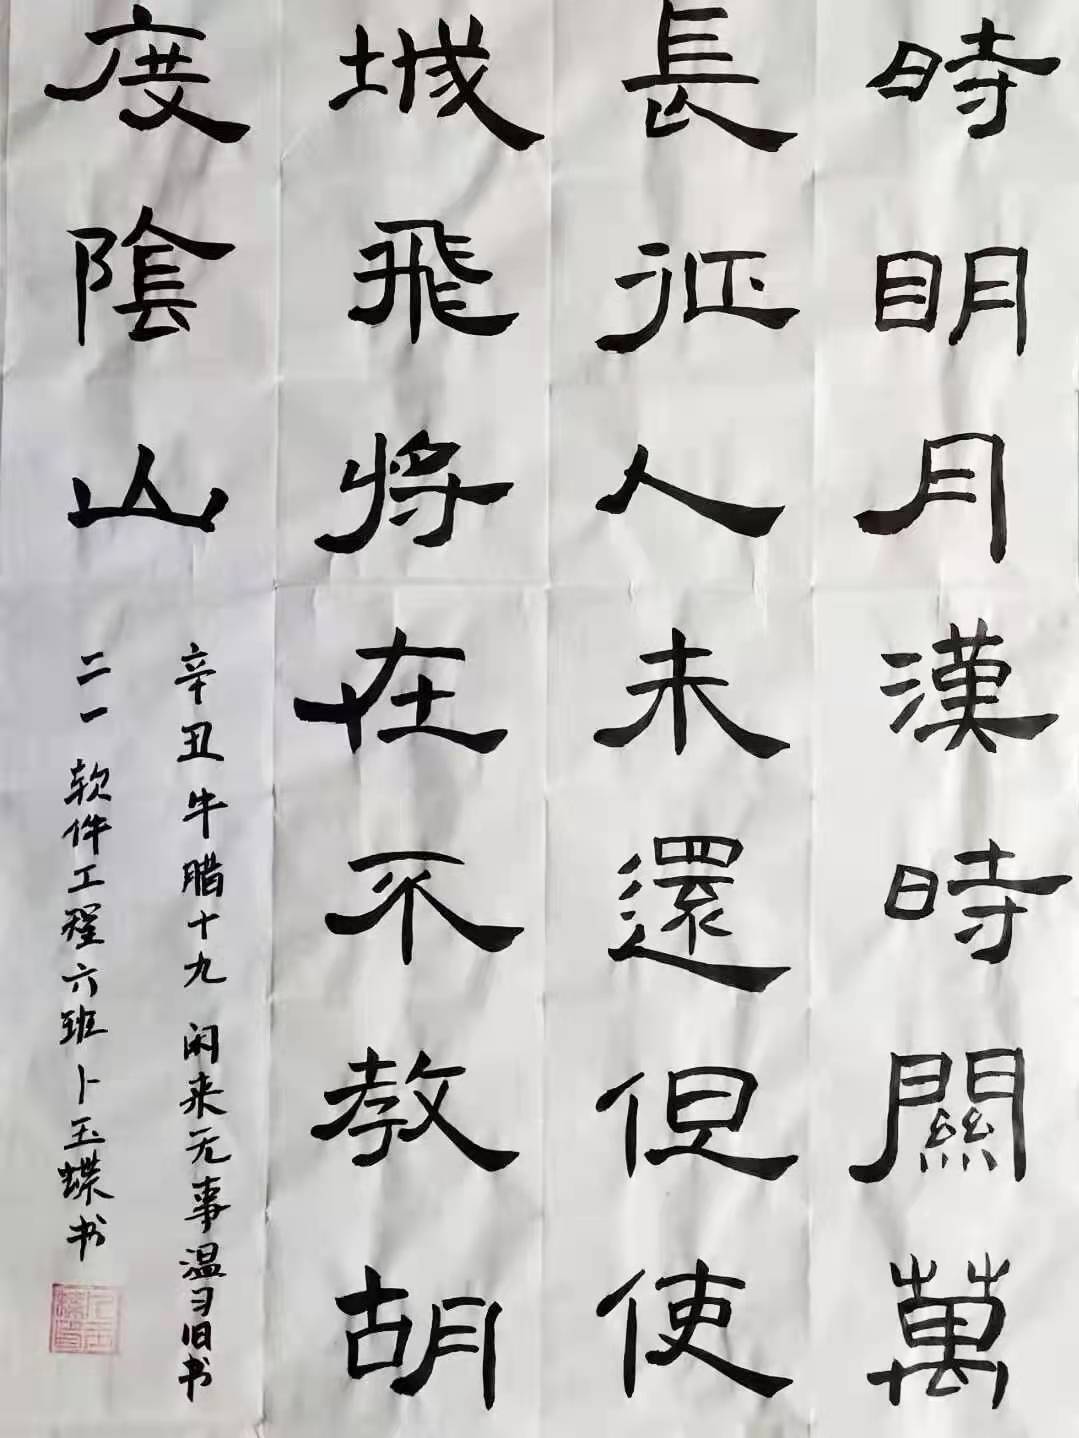 時明月漢時關萬
長征人未還但使
城飛將在不教胡
度陰山
辛丑牛腊十九 闲来无事温习旧书
二一 软件工程六班卜玉蝶书